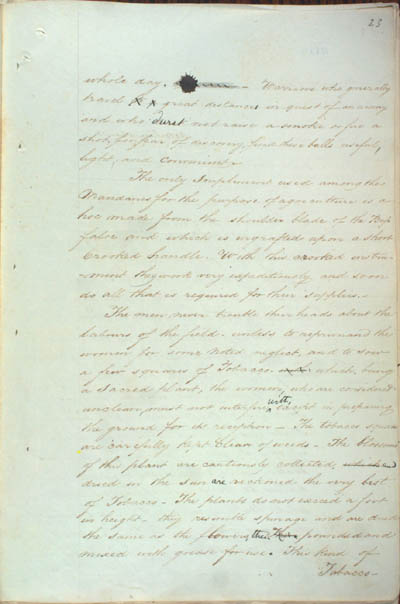 23
whole day. - Warriors who generally
travel great distances in quest of an enemy
and who durst not raise a smoke or fire a
shot for fear of discovery, find these balls useful,
light, and convenient -
The only Implement used among the
Mandanes for the purpose of agriculture is a
hoe made from the shoulder blade of the Buf-
faloe and which is engrafted upon a short
Crooked handle. With this crooked instru-
-ment they work very expeditiously and soon
do all that is required for their supplies. -
The men never trouble their heads about the
labours of the field unless to reprimand the
women for some Noted neglect, and to sow
a few squares of Tobacco which, being
a sacred plant, the women, who are considered
unclean, must not interfere with, except in preparing
the ground for its reception - The tobacco squares
are carefully kept Clean of weeds - The Blossoms
of this plant are cautiously collected,
dried in the Sun are reckoned the very best
of Tobacco - The plants do not exceed a foot
in height - they resemble spinage and are dried
the same as the flowers, then pounded and
mixed with grease for use. This kind of
Tobacco -